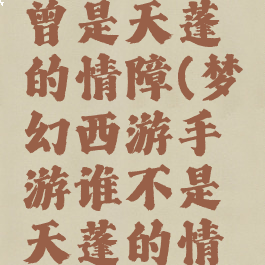 曾是天蓬
的情障(梦
幻西游手
游谁不是
天蓬的情